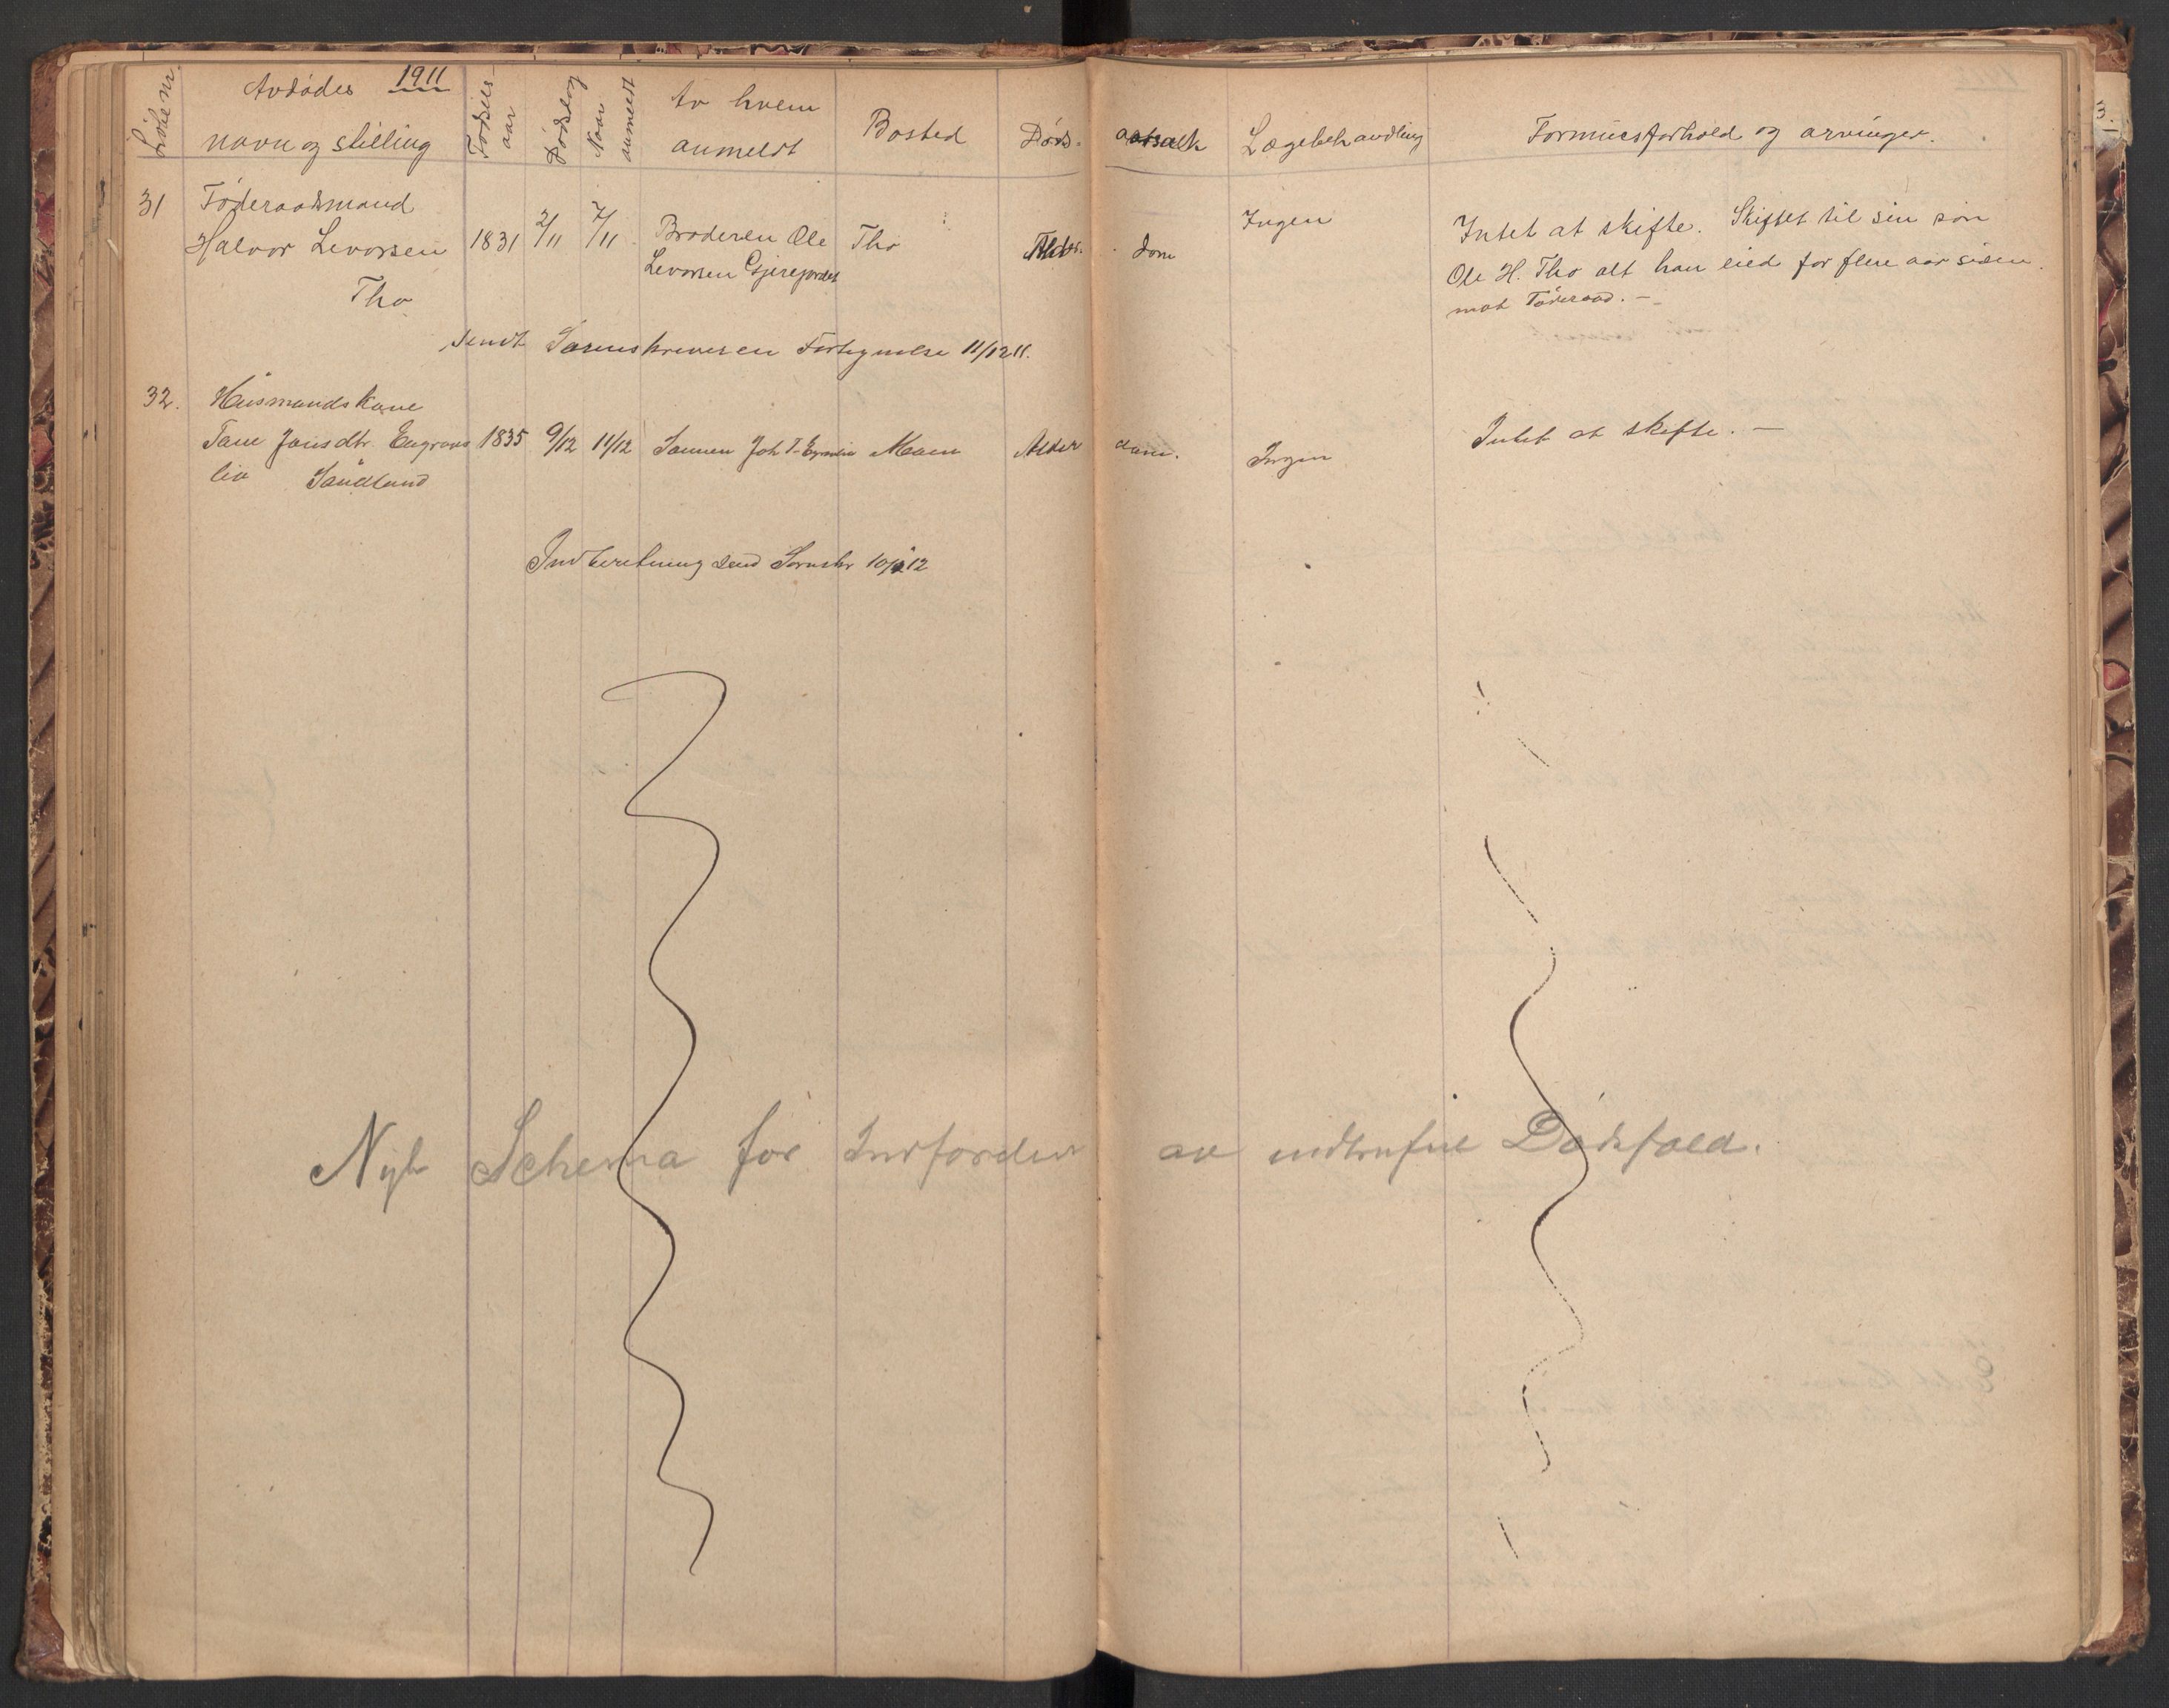 Avdødes 1911
Løbe nr.
navn og stilling
Fødsels-
aar
Dødsdag
Naar
anmeldt
Av hvem
anmeldt
Bosted
Døds- aarsak
Lægebehandling
Formuesforhold og arvinger.
31 Føderaadsmand
Halvor Levorsen 1831 2/11 7/11 Broderen Ole Tho Alder- dom Ingen
Levorsen Gjerejordet
Tho
Intet at skifte. Skiftet til sin søn
Ole H. Tho alt han eied for flere aar siden
mot Føderaad. —
Sendt Sorenskriveren Fortegnelse 11/12 11.
32. Husmandskone
Tone Jonsdtr. 1835 9/12 11/12 Sønnen Joh T. Moen Alder dom. Ingen Intet at skifte. —
lia Sandland
Indberetning send Sornskr 10/1 12
Nyt Schema for av indtrufne Dødsfald.